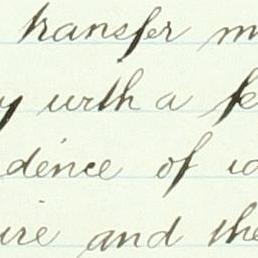 transfer m
y with a fe
dence of id
ure and the